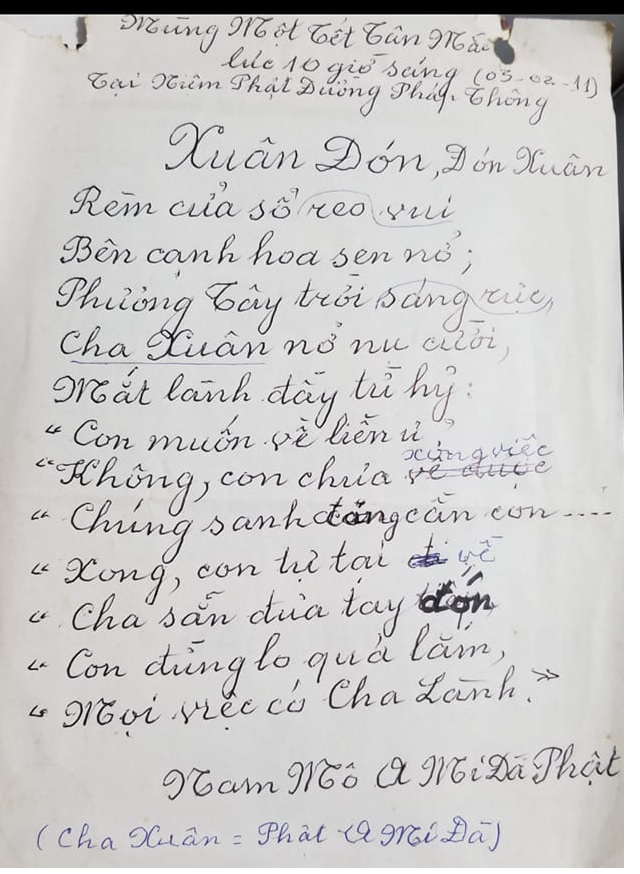 Mùng Một Tết Tân Mão
lúc 10 giờ sáng (03-02-11)
Tại Niệm Phật Đường Pháp Thông
Xuân Đón, Đón Xuân
Rèm cửa sổ reo vui
Bên cạnh hoa sen nở;
Phương Tây trời sáng rực,
Cha Xuân nở nụ cười,
Mắt lành đầy từ hỷ:
“ Con muốn về liền ư?
xứng việc
“ Không, con chưa về được
“ Chúng sanh đang cần con ....
“ Xong, con tự tại về
“ Cha sẵn đưa tay đón
“ Con đừng lo quá lắm,
“ Mọi việc có Cha Lành.”
Nam Mô A Mi Đà Phật
(Cha Xuân = Phật A Mi Đà)